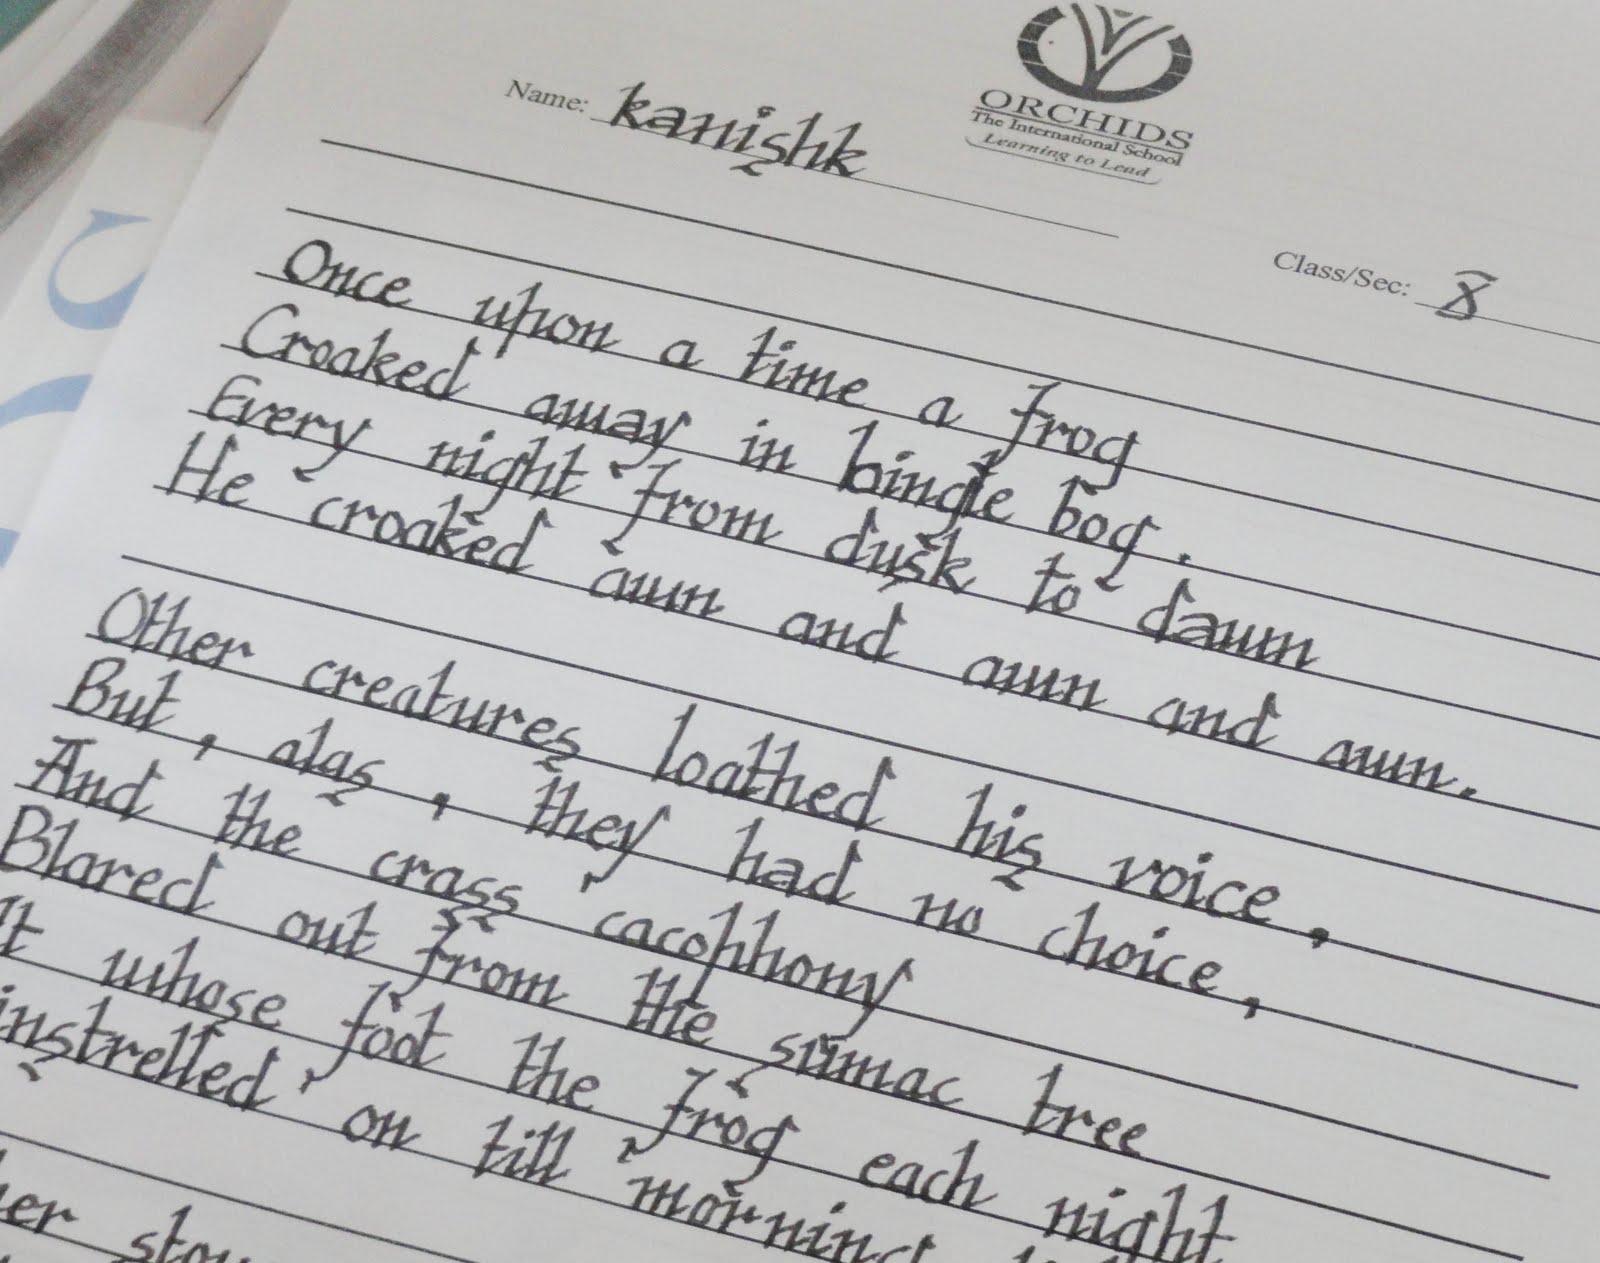 ORCHIDS
The International School
Learning to Lead
Name: kanishk
Class/Sec: X
Once upon a time a frog
Croaked away in bingle bog.
Every night from dusk to dawn
He croaked awn and awn and awn.
Other creatures loathed his voice,
But, alas, they had no choice,
And the crass cacophony
Blared out from the sumac tree
At whose foot the frog each night
instrelled on till morning